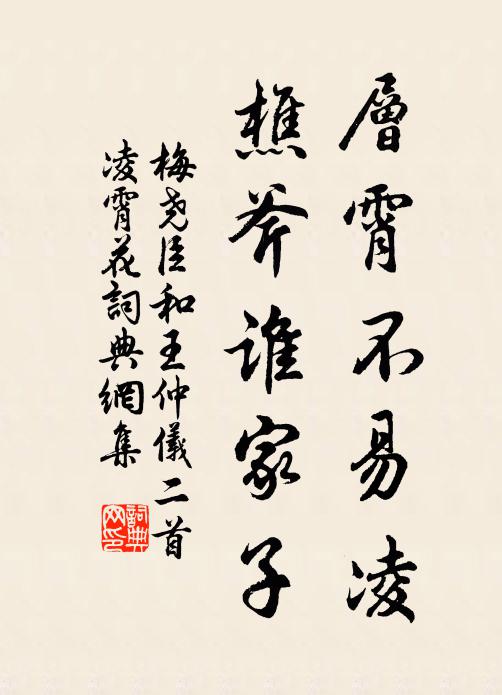 層霄不易凌
樵斧誰家子
梅堯臣和王仲儀二首
凌霄花詞典網集
詞典
网印